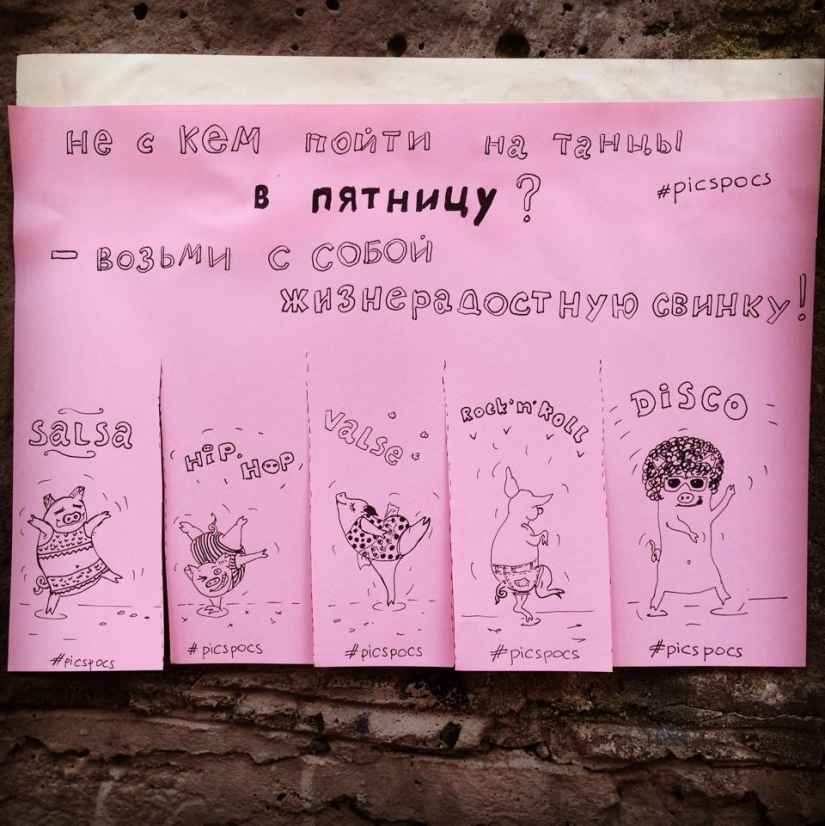 не с кем пойти на танцы
в пятницу?
#picspocs
- возьми с собой
жизнерадостную свинку!
SALSA
HIP-HOP
VALSE
ROCK'N'ROLL
DISCO
#picspocs
#picspocs
#picspocs
#picspocs
#picspocs